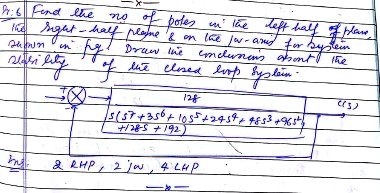 Pr:6 Find the no of poles in the left half of plane,
the right-half plane & on the jw-axis for system
shown in fig. Draw the conclusions about the
stability of the closed loop system.
+
128
C(s)
S(S⁷ + 3S⁶ + 10S⁵ + 24S⁴ + 48S³ + 96S²
+ 128S + 192)
Ans: 2 RHP, 2 jw, 4 LHP